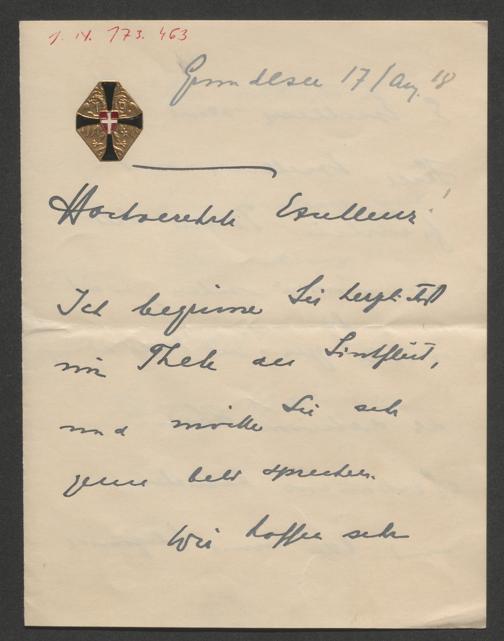 J. N. 173.463
Grundlsee 17/Aug. 18
Hochverehrte Exzellenz!
Ich begrüsse Sie herzlichst
im Thale der Sintflut,
und möchte Sie sehr
gerne bald sprechen.
Wir hoffen sehr